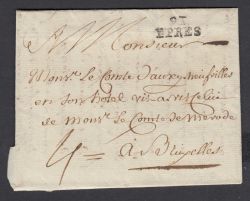 97
YPRES
A Monsieur
Monsr. Le Comte d'auxy Neufvilles
en son hotel vis a vis Celui
de Monsr. Le Comte de Merode
A Bruxelles